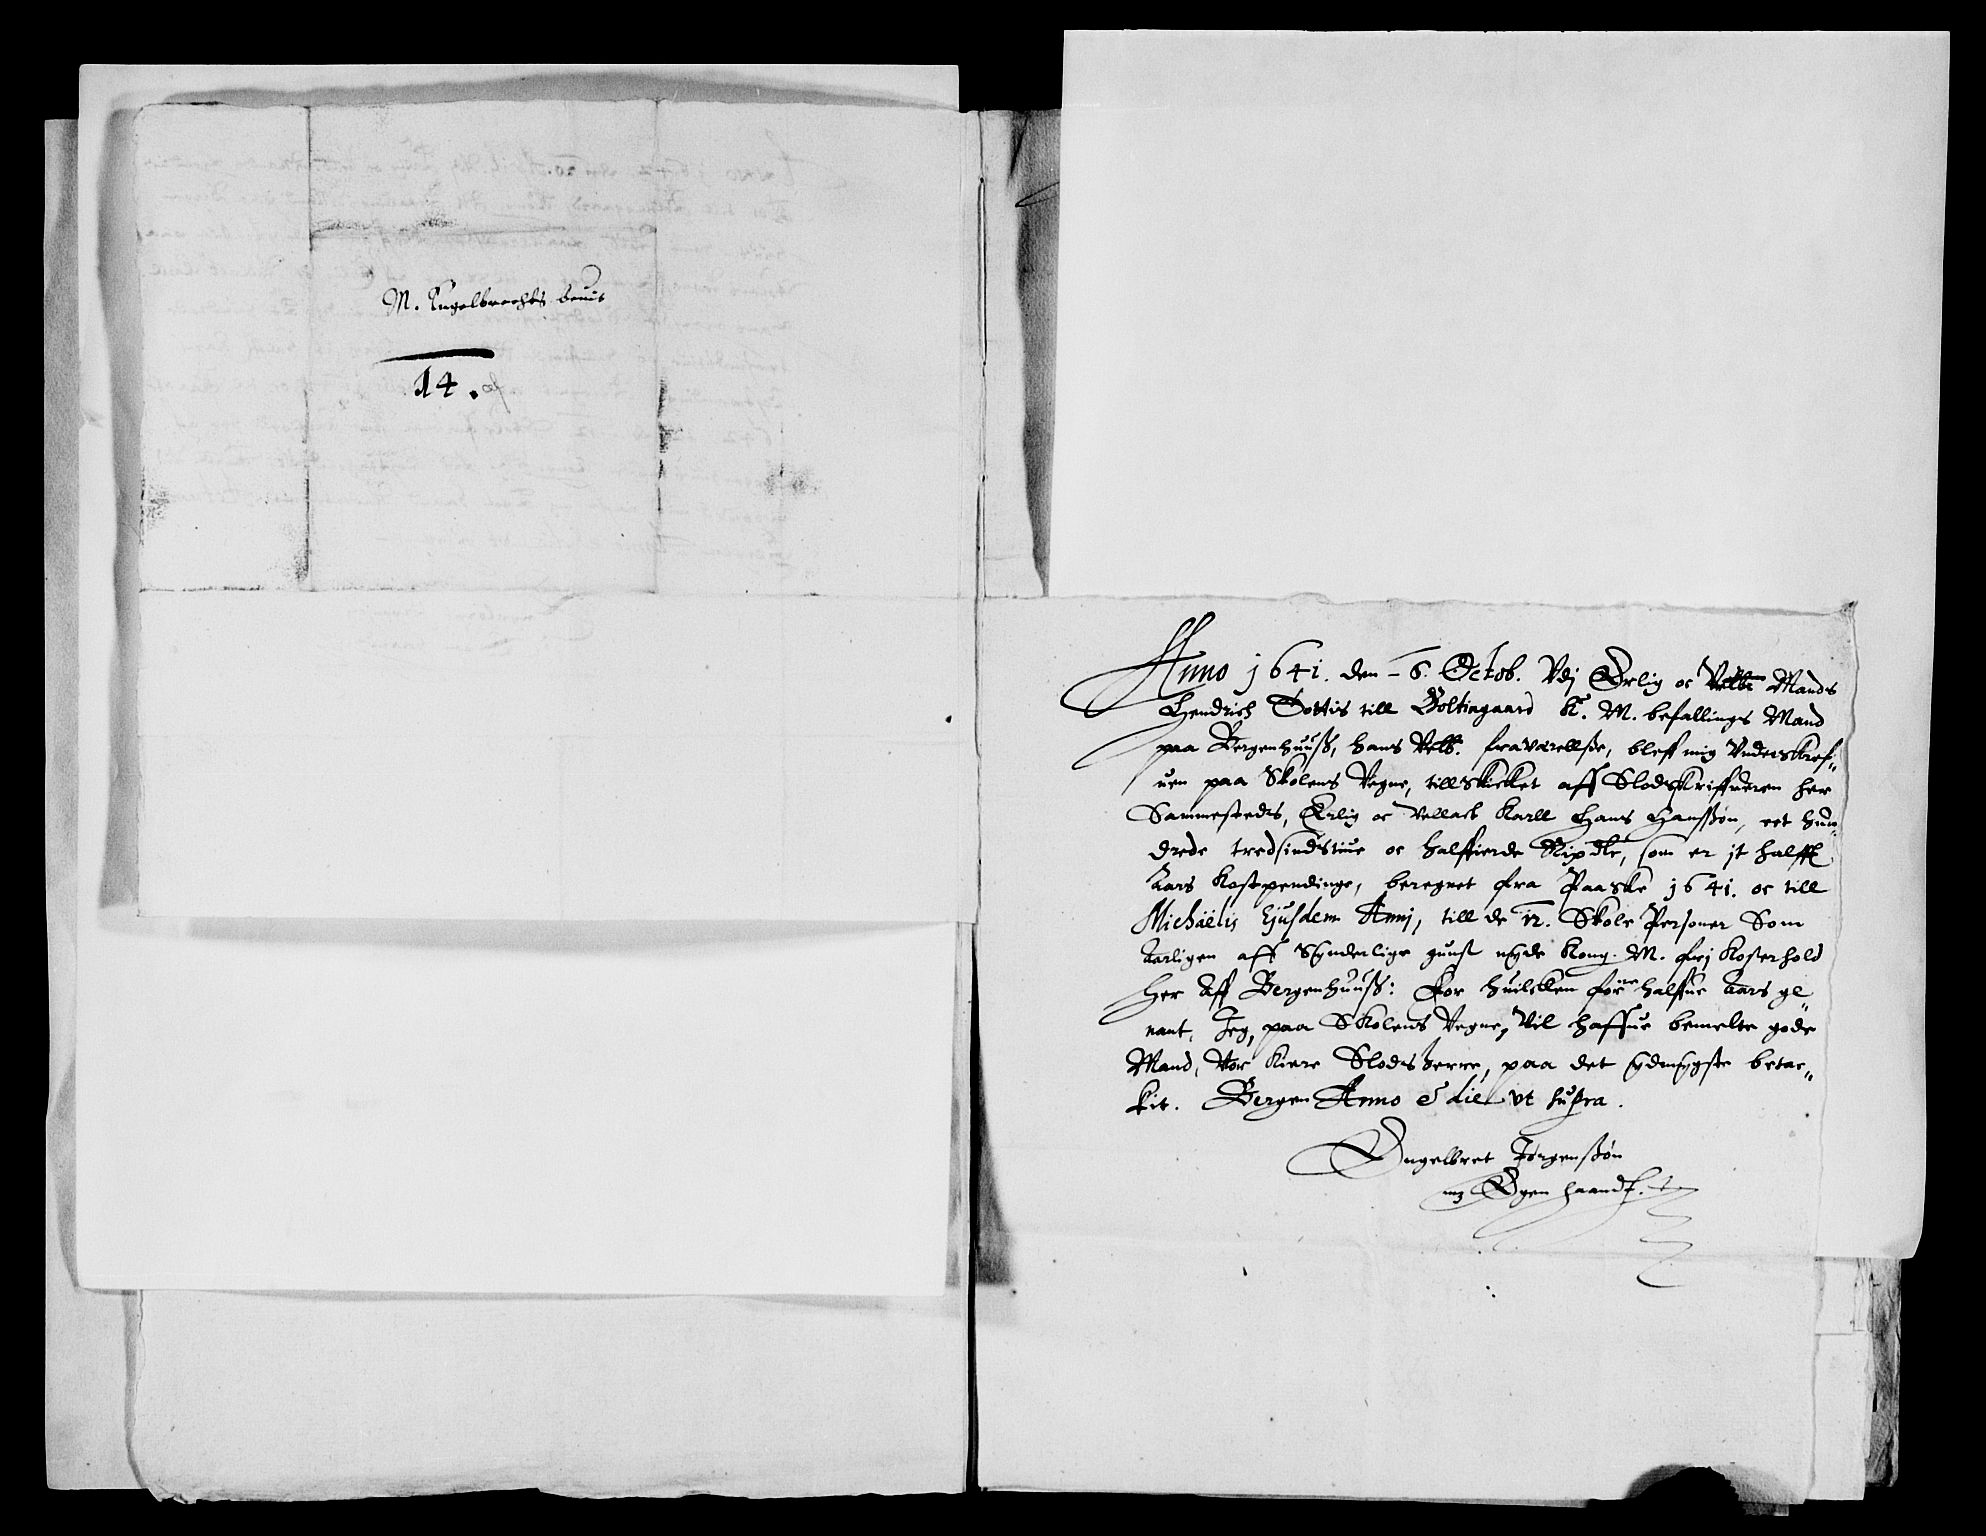 M. Engelbrechts beuis
14.
Anno 1641. den 6. Octob. Vdj Ærlig oc Velbr Mands
Hendrich Tottis till Boltingaard K. M. befallings Mand
paa Bergenhuuss, hans Velb. fraværellsse, bleff mig Vnderskref„
uen paa Skolens Vegne, tillskicket aff Slodskriffueren her
Sammesteds, Ærlig oc Vellacht Karll Hans Hanssøn, eet hun„
drede tredsindstiue oc halffierde Rixdlr, som er it halfft
Aars Kostpendinge, beregnet fra Paaske 1641. oc till
Michaëlis Ejusdem Annj, till de 12. Skole Personer Som
Aarligen aff Synderlige gunst nyde Kong. M. frj Kosterhold
her Aff Bergenhuuss: For huilcken for.ne halffue Aars ge„
nant, Jeg, paa Skolens Vegne, Vil haffue bemelte gode
Mand, Vor Kiere Slodsherre, paa det ydmygste betac„
kit. Bergen Anno & die ut supra.
Engelbret Jørgenssøn
mz Egen haand.